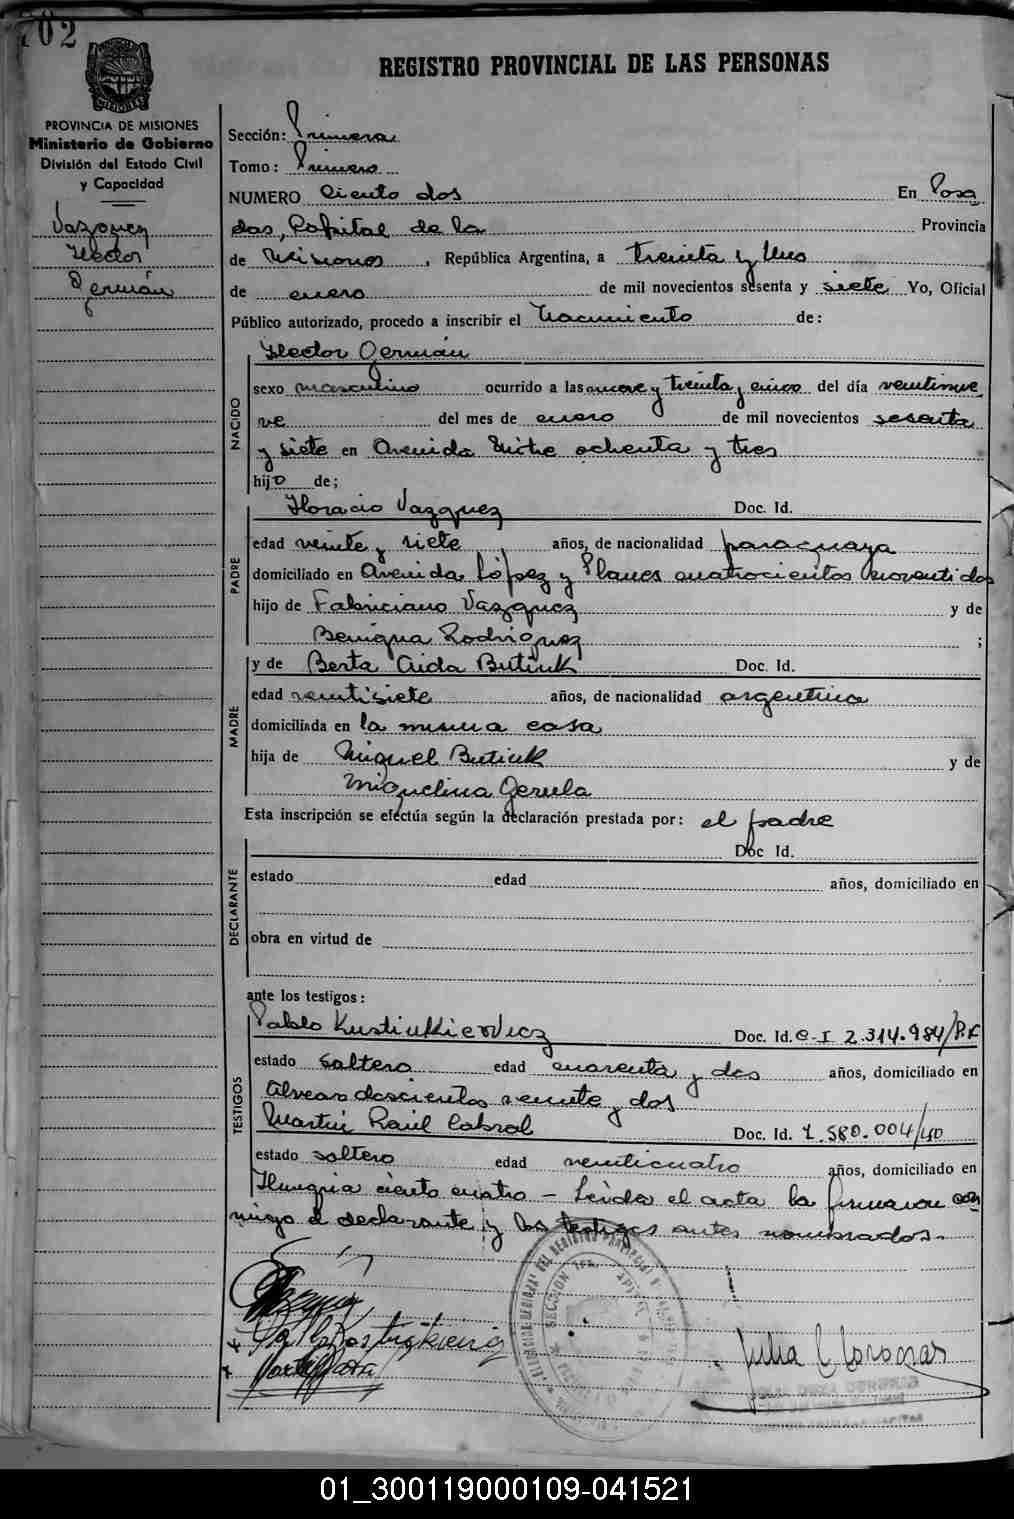 702
REGISTRO PROVINCIAL DE LAS PERSONAS
PROVINCIA DE MISIONES
Ministerio de Gobierno
División del Estado Civil
y Capacidad
Vazquez
Hector
Germán
Sección: Primera
Tomo: Primero
NUMERO Ciento dos En Posa
das, Capital de la Provincia
de Misiones, República Argentina, a treinta y uno
de enero de mil novecientos sesenta y siete Yo, Oficial
Público autorizado, procedo a inscribir el Nacimiento de:
NACIDO
Hector Germán
sexo masculino ocurrido a las nueve y treinta y cinco del día veintinue
ve del mes de enero de mil novecientos sesenta
y siete en Avenida Mitre ochenta y tres
hijo de;
PADRE
Horacio Vazquez Doc. Id.
edad veinte y siete años, de nacionalidad paraguaya
domiciliado en Avenida López y Planes cuatrocientos noventidos
hijo de Fabriciano Vazquez y de
Benigna Rodriguez ;
MADRE
y de Berta Aida Butiuk Doc. Id.
edad veintisiete años, de nacionalidad argentina
domiciliada en la misma casa
hija de Miguel Butiuk y de
Miquelina Gerula
Esta inscripción se efectúa según la declaración prestada por: el padre
DECLARANTE
Doc Id.
estado edad años, domiciliado en
obra en virtud de
ante los testigos:
TESTIGOS
Pablo Kustiukiewicz Doc. Id. C-I 2.314.984/P.F
estado soltero edad cuarenta y dos años, domiciliado en
Alvear doscientos veinte y dos
Martin Raúl Cabral Doc. Id. 7.580.004/40
estado soltero edad veinticuatro años, domiciliado en
Hungria ciento cuatro - Leida el acta la firmaron con
migo el declarante y los testigos antes nombrados.-
01_300119000109-041521